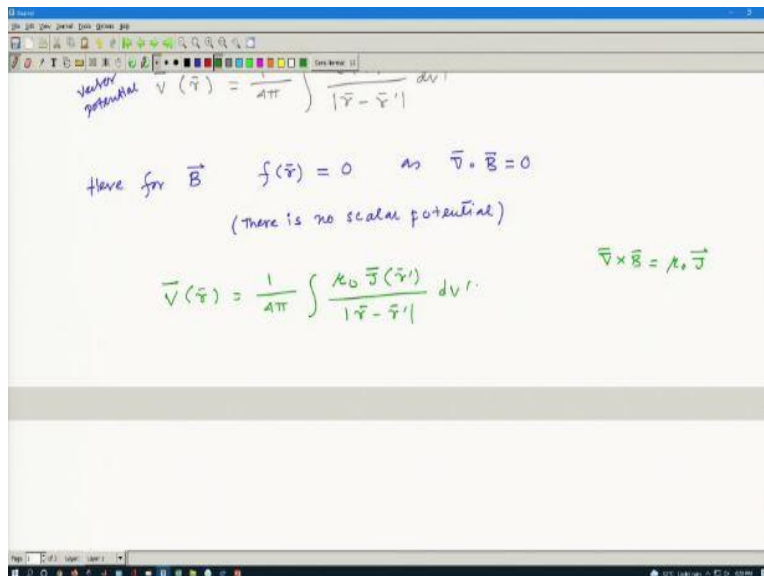 File Edit View Journal Tools Options Help
Sans Normal 12
vector potential V̄ (r̄) = 1/4π ∫ / |r̄ - r̄'| dv'
Here for B⃗ f(r̄) = 0 as ∇̄ . B̄ = 0
(There is no scalar potential)
∇̄ × B̄ = μ₀ J⃗
V̄(r̄) = 1/4π ∫ μ₀ J̄(r̄') / |r̄ - r̄'| dv'.
Page 1 of 3 Layer: Layer 1